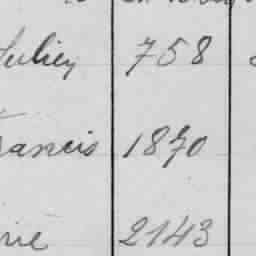 Julien 758
rancis 1870
rie 2143